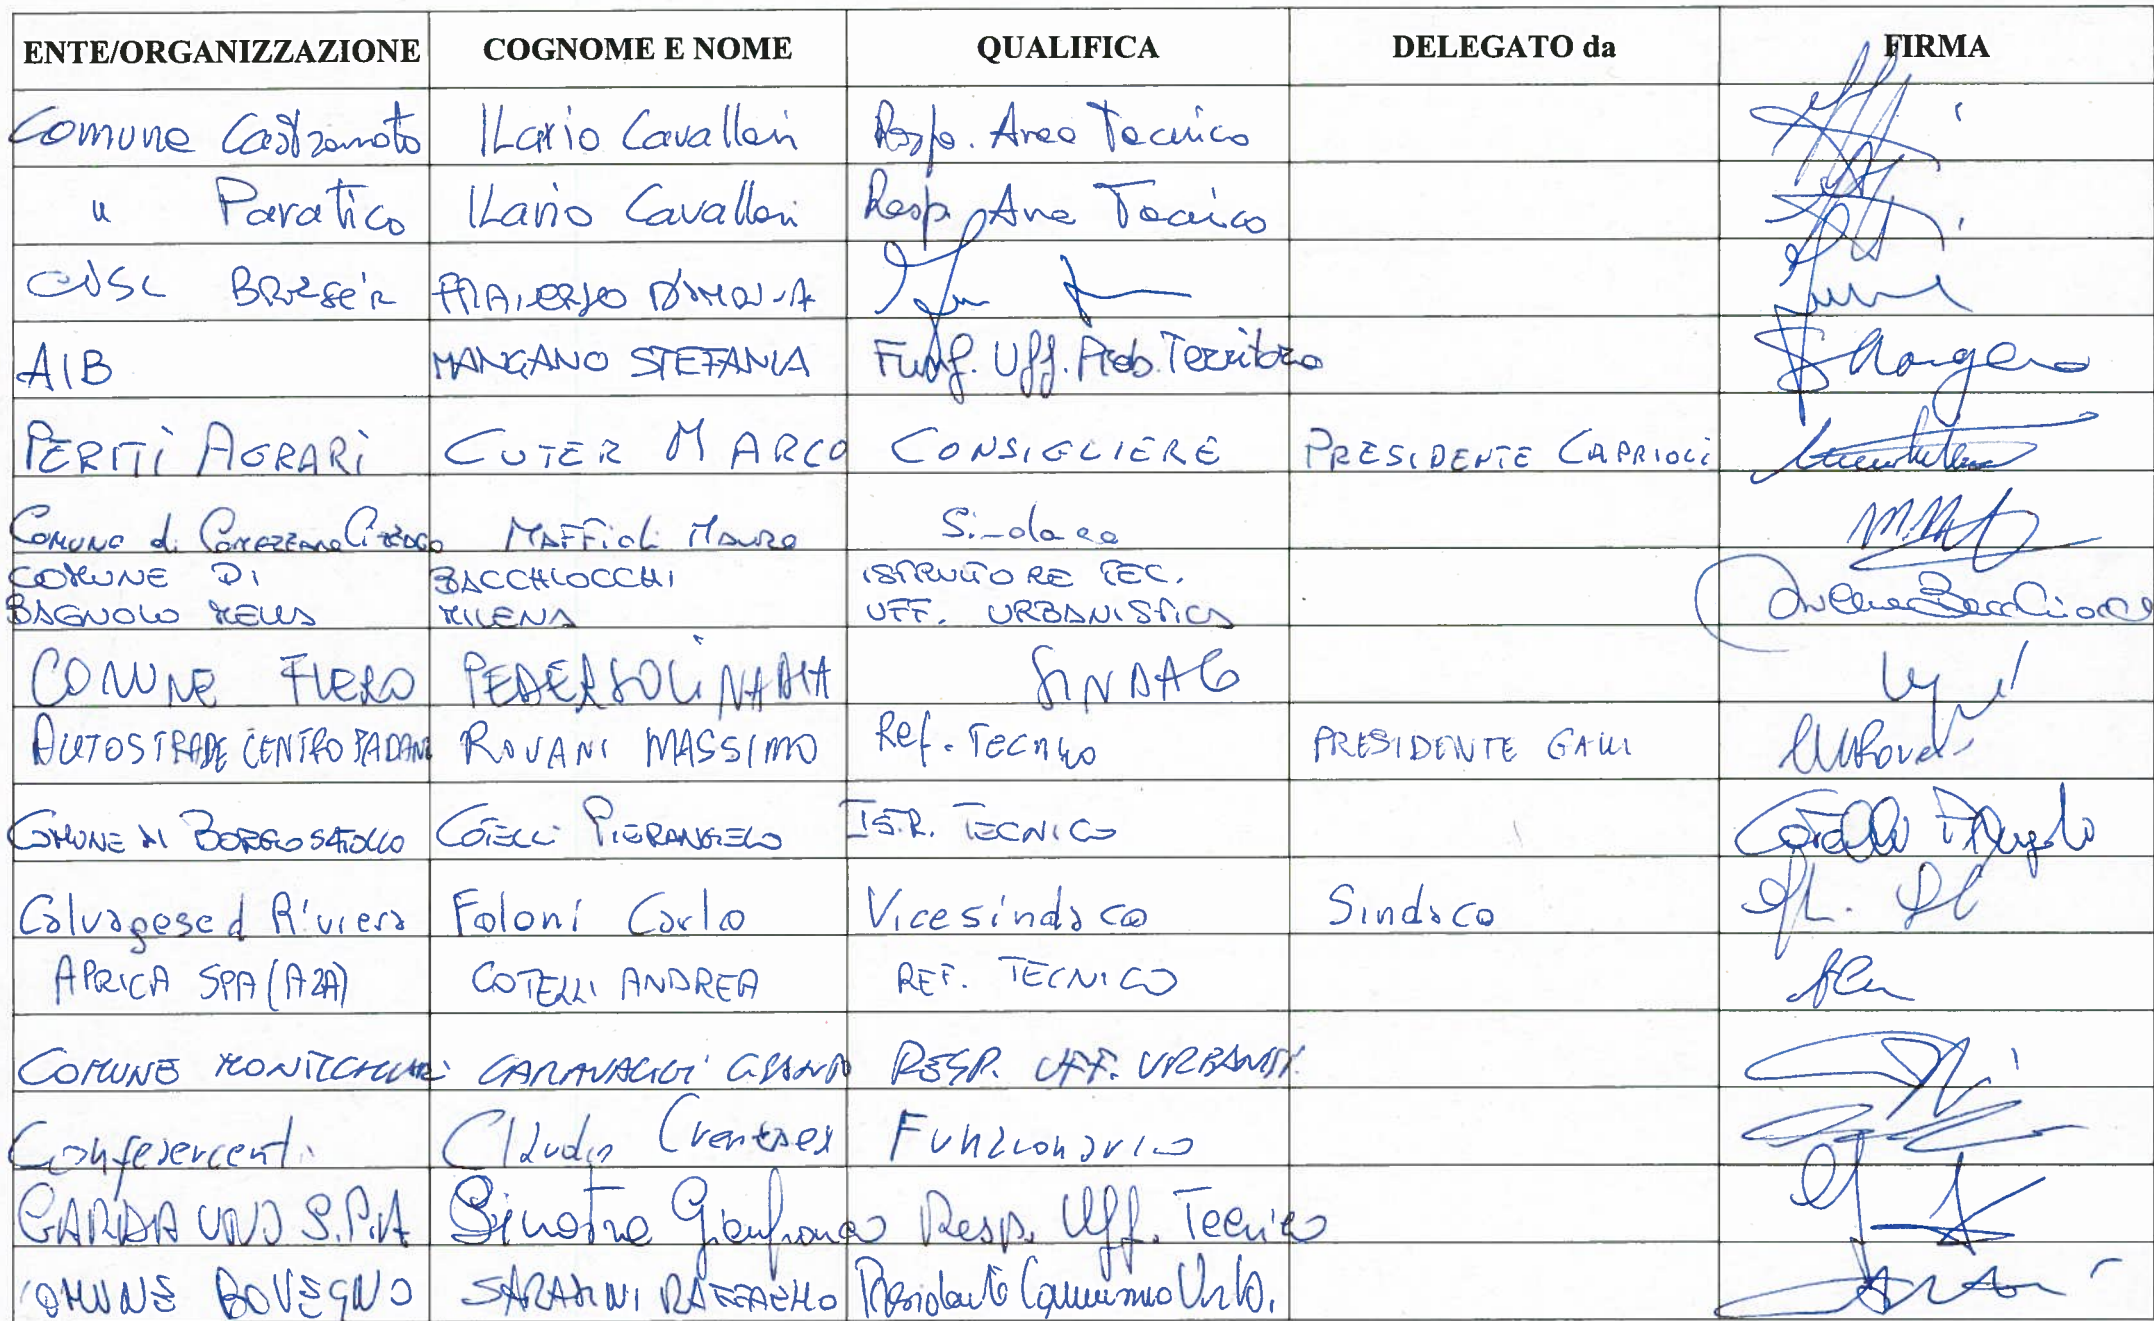 ENTE/ORGANIZZAZIONE COGNOME E NOME QUALIFICA DELEGATO da FIRMA
Comune Castrezzato Ilario Cavalleri Resp. Area Tecnico
" Paratico Ilario Cavalleri Resp. Area Tecnico
CISL
AIB MANGANO STEFANIA Funz. Uff. Territorio
PERITI AGRARI CUTER MARCO CONSIGLIERE PRESIDENTE CAPRIOLI
Comune di Maffioli Mauro Sindaco
COMUNE DI BACCHIOCCHI ISTRUTTORE TEC.
BAGNOLO MELLA MILENA UFF. URBANISTICA
COMUNE FLERO PEDERSOLI NADIA SINDACO
AUTOSTRADE CENTRO PADANE ROVANI MASSIMO Ref. Tecnico PRESIDENTE GALLI
COMUNE DI BORGOSATOLLO COTELLI PIERANGELO ISTR. TECNICO
Calvagese d Riviera Foloni Carlo Vicesindaco Sindaco
APRICA SPA (A2A) COTELLI ANDREA REF. TECNICO
COMUNE MONTICHIARI CARAVAGGI RESP. UFF. URBANIST.
Confesercenti Claudio Funzionario
GARDA UNO S.P.A Sinatra Gianfranco Resp. Uff. Tecnico
COMUNE BOVEGNO RAFFAELLO Presidente